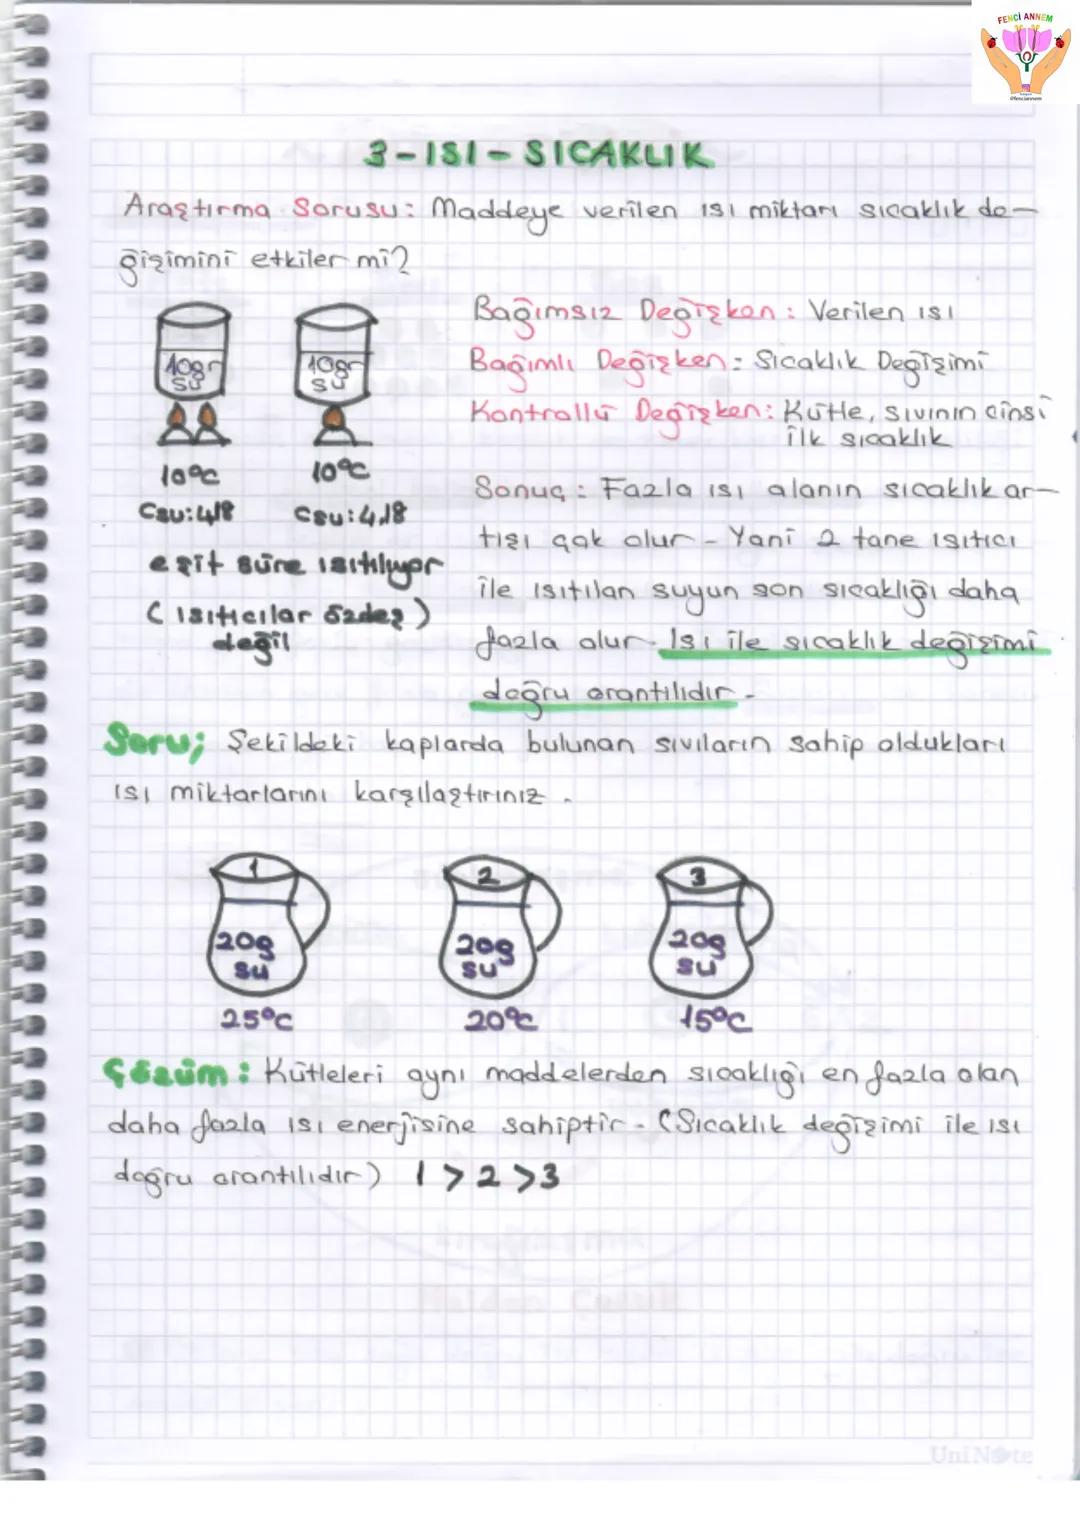 FENCİ ANNEM
@fenciannem
3-ISI-SICAKLIK
Araştırma Sorusu: Maddeye verilen ısı miktarı sıcaklık de-
ğişimini etkiler mi?
10gr
su
10gr
su
10°C
10°C
Csu:4,18
Csu:4,18
eşit süre ısıtılıyor
(ısıtıcılar özdeş)
değil
Bağımsız Değişken: Verilen ısı
Bağımlı Değişken: Sıcaklık Değişimi
Kontrollü Değişken: Kütle, sıvının cinsi
ilk sıcaklık
Sonuç: Fazla ısı alanın sıcaklık ar-
tışı çok olur. Yani 2 tane ısıtıcı
ile ısıtılan suyun son sıcaklığı daha
fazla olur. Isı ile sıcaklık değişimi
doğru orantılıdır.
Soru; Şekildeki kaplarda bulunan sıvıların sahip oldukları
ısı miktarlarını karşılaştırınız.
1
2
3
20g
su
20g
su
20g
su
25°C
20°C
15°C
Çözüm: Kütleleri aynı maddelerden sıcaklığı en fazla olan
daha fazla ısı enerjisine sahiptir. (Sıcaklık değişimi ile ısı
doğru orantılıdır) 1>2>3
UniNote